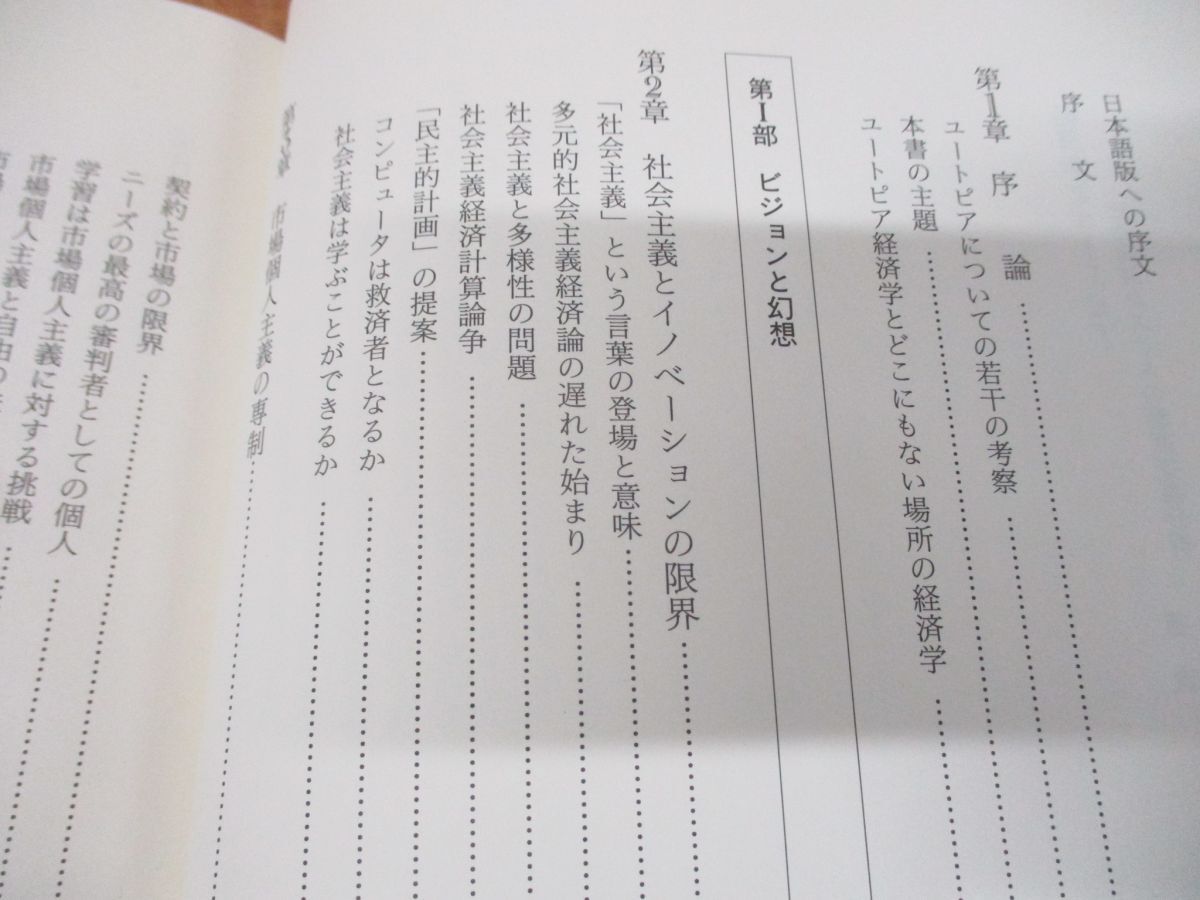 日本語版への序文
序　文
第1章　序　論
ユートピアについての若干の考察
本書の主題
ユートピア経済学とどこにもない場所の経済学
第Ⅰ部　ビジョンと幻想
第2章　社会主義とイノベーションの限界
「社会主義」という言葉の登場と意味
多元的社会主義経済論の遅れた始まり
社会主義と多様性の問題
社会主義経済計算論争
「民主的計画」の提案
コンピュータは救済者となるか
社会主義は学ぶことができるか
第3章　市場個人主義の専制
契約と市場の限界
ニーズの最高の審判者としての個人
学習は市場個人主義に対する挑戦
市場個人主義と自由の